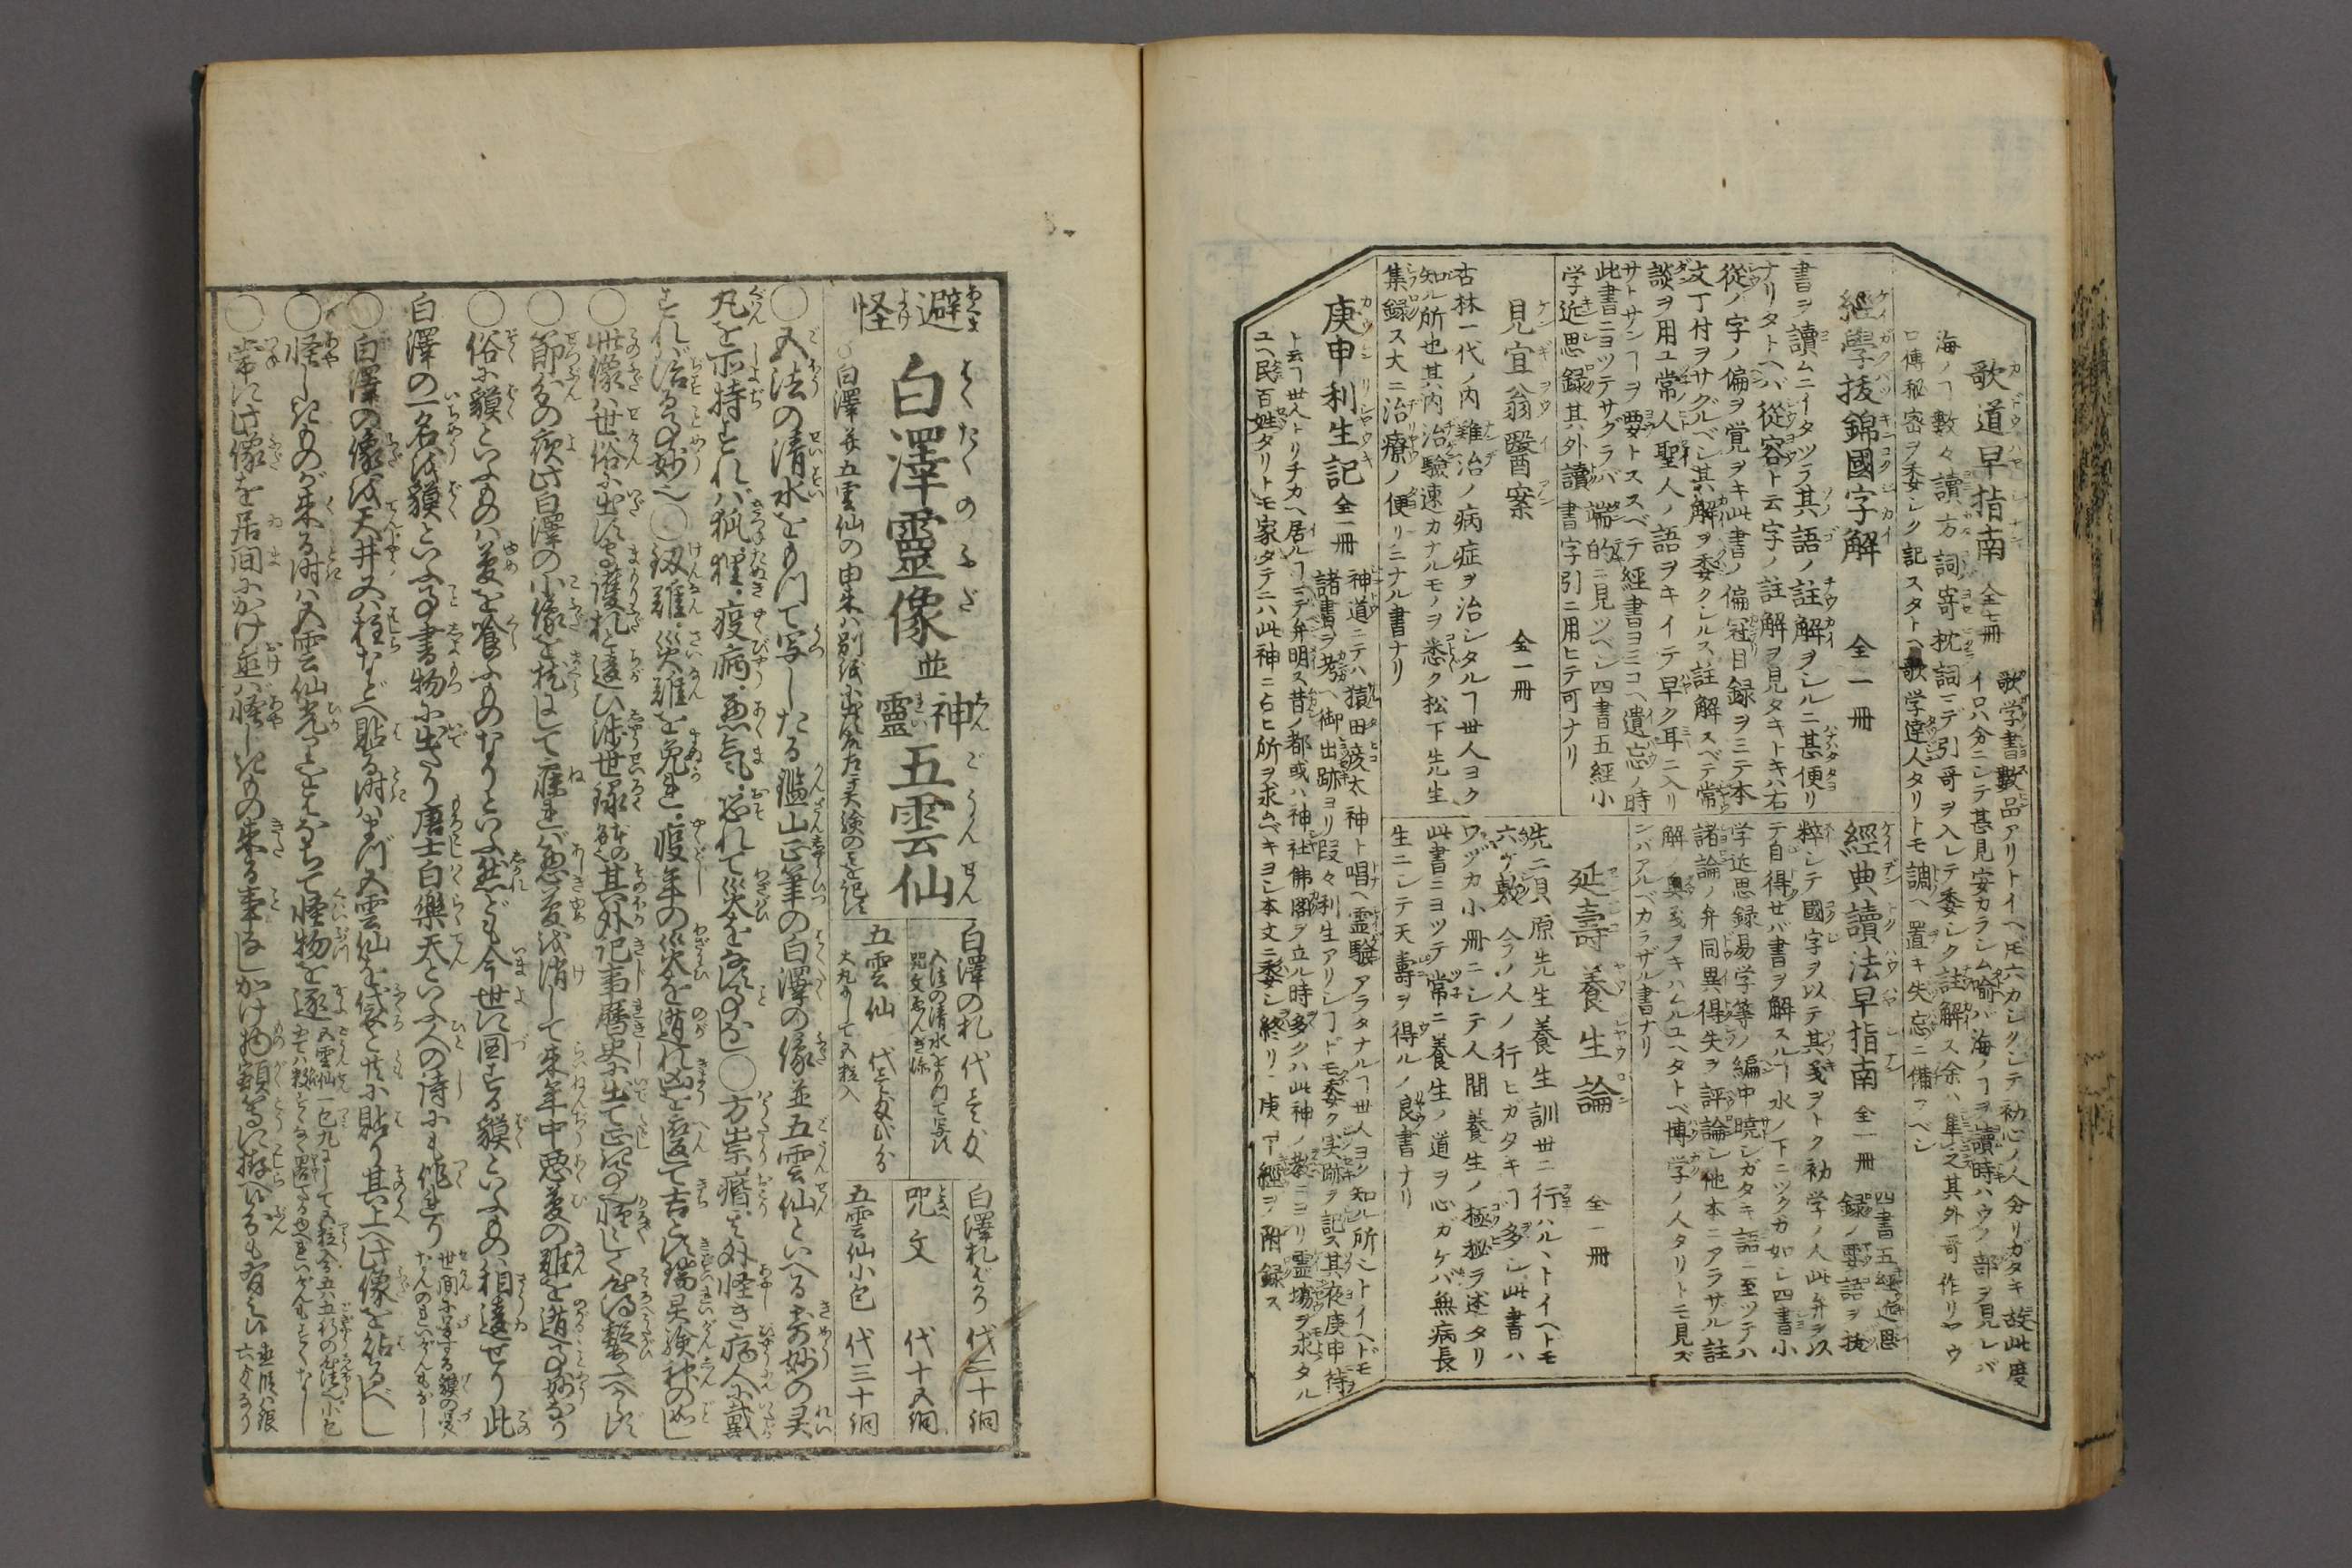 歌道早指南 全七冊
歌学書数品アリトイヘ𪜈六カシクシテ初心ノ人分リガタキ故此度
イロハ分ニシテ甚見安カラシム喩バ海ノヿヲ讀時ハウノ部ヲ見レバ
海ノヿ數々讀方詞寄枕詞ニテ引哥ヲ入レテ委シク註解ス余ハ準之其外哥作リヤウ
口傳秘密ヲ委シク記スタトヘ歌学達人タリトモ調ヘ置キ失忘ニ備フベシ
經學拔錦國字解 全一冊
書ヲ讀ムニイタツテ其語ノ註解ヲシルニ甚便リ
ナリタトヘバ從容ト云字ノ註解ヲ見タキトキハ右
從ノ字ノ偏ヲ覚ヲキ此書ノ偏冠目録ヲミテ本
文丁付ヲサグルベシ其解ヲ委クシルス註解スベテ常
談ヲ用ユ常人聖人ノ語ヲキイテ早ク耳ニ入リ
サトサンヿヲ要トススベテ經書ヨミコヘ遺忘ノ時
此書ニヨツテサグラバ端的ニ見ツベシ四書五經小
学近思録其外讀書字引ニ用ヒテ可ナリ
經典讀法早指南 全一冊
四書五經近思
録ノ要語ヲ抜
粹シテ國字ヲ以テ其義ヲトク初学ノ人此弁ヲ以
テ自得セバ書ヲ解スルヿ水ノ下ニツクガ如シ四書小
学近思録易学等ノ編中暁シガタキ語ニ至ツテハ
諸論ノ弁同異得失ヲ評論シ他本ニアラザル註
解ノ奥義ヲキハムルユヘタトヘ博学ノ人タリトモ見ズ
ンバアルベカラザル書ナリ
見宜翁醫案 全一冊
古林一代ノ内難治ノ病症ヲ治シタルヿ世人ヨク
知ル所也其内治驗速カナルモノヲ悉ク松下先生
集録ス大ニ治療ノ便リニナル書ナリ
延壽養生論 全一冊
先ニ貝原先生養生訓世ニ行ハルヽトイヘドモ
六ケ敷今ノ人ノ行ヒガタキヿ多シ此書ハ
ワヅカ小冊ニシテ人間養生ノ極秘ヲ述タリ
此書ニヨツテ常ニ養生ノ道ヲ心ガケバ無病長
生ニシテ天壽ヲ得ルノ良書ナリ
庚申利生記 全一冊
神道ニテハ猿田彦太神ト唱ヘ霊驗アラタナルヿ世人ヨク知ル所シトイヘドモ
諸書ヲ考ヘ御出跡ヨリ段々利生アリシヿドモ委ク実跡ヲ記ス其夜庚申待ヲ
ト云ヿ世人トリチカヘ居ルヿマデ弁明ス昔ノ都或ハ神社佛閣ヲ立ル時多クハ此神ノ教ニヨリ霊場ヲ求タル
ユヘ民百姓タリトモ家タテニハ此神ニ占ヒ所ヲ求ムベキヨシ本文ニ委シ終リニ庚申經ヲ附録ス
避怪 白澤靈像 並 神靈 五雲仙
白澤并五雲仙の由来ハ別紙に出せり
白澤の札
五法の清水をもつて写し
五雲仙
大丸にして五粒入
白澤札ばかり 代三十銅
咒文 代十五銅
五雲仙小包 代三十銅
○五法の清水をもつて写したる鑑山正筆の白澤の像並五雲仙といへる奇妙の霊
丸を所持すれバ狐狸・疫病・悪気・恐れて災をなさず○方祟・瘧・其外怪き病人に戴
すれバ治る事妙也○剱難・災難を免れ・疫年の災を遁れ凶を変て吉とす
○此像ハ世俗に出す守護札と違ひ
○節分の夜此白澤の小像を枕にして寐れバ悪夢を消して来年中悪夢の難を遁る事妙なり
○俗に貘といふものハ夢を喰ふものなりといふ然ども今世に図する貘といふものハ相違せり此
白澤の一名を貘といふ事書物に出たり唐土白樂天といふ人の詩にも作れり
○白澤の像を天井又ハ柱などへ貼る時ハまづ五雲仙を袋と共に貼り其上へ此像を貼るべし
○怪しきものが来る時ハ五雲仙
○常に此像を居間にかけ置バ怪しきもの来る事なし